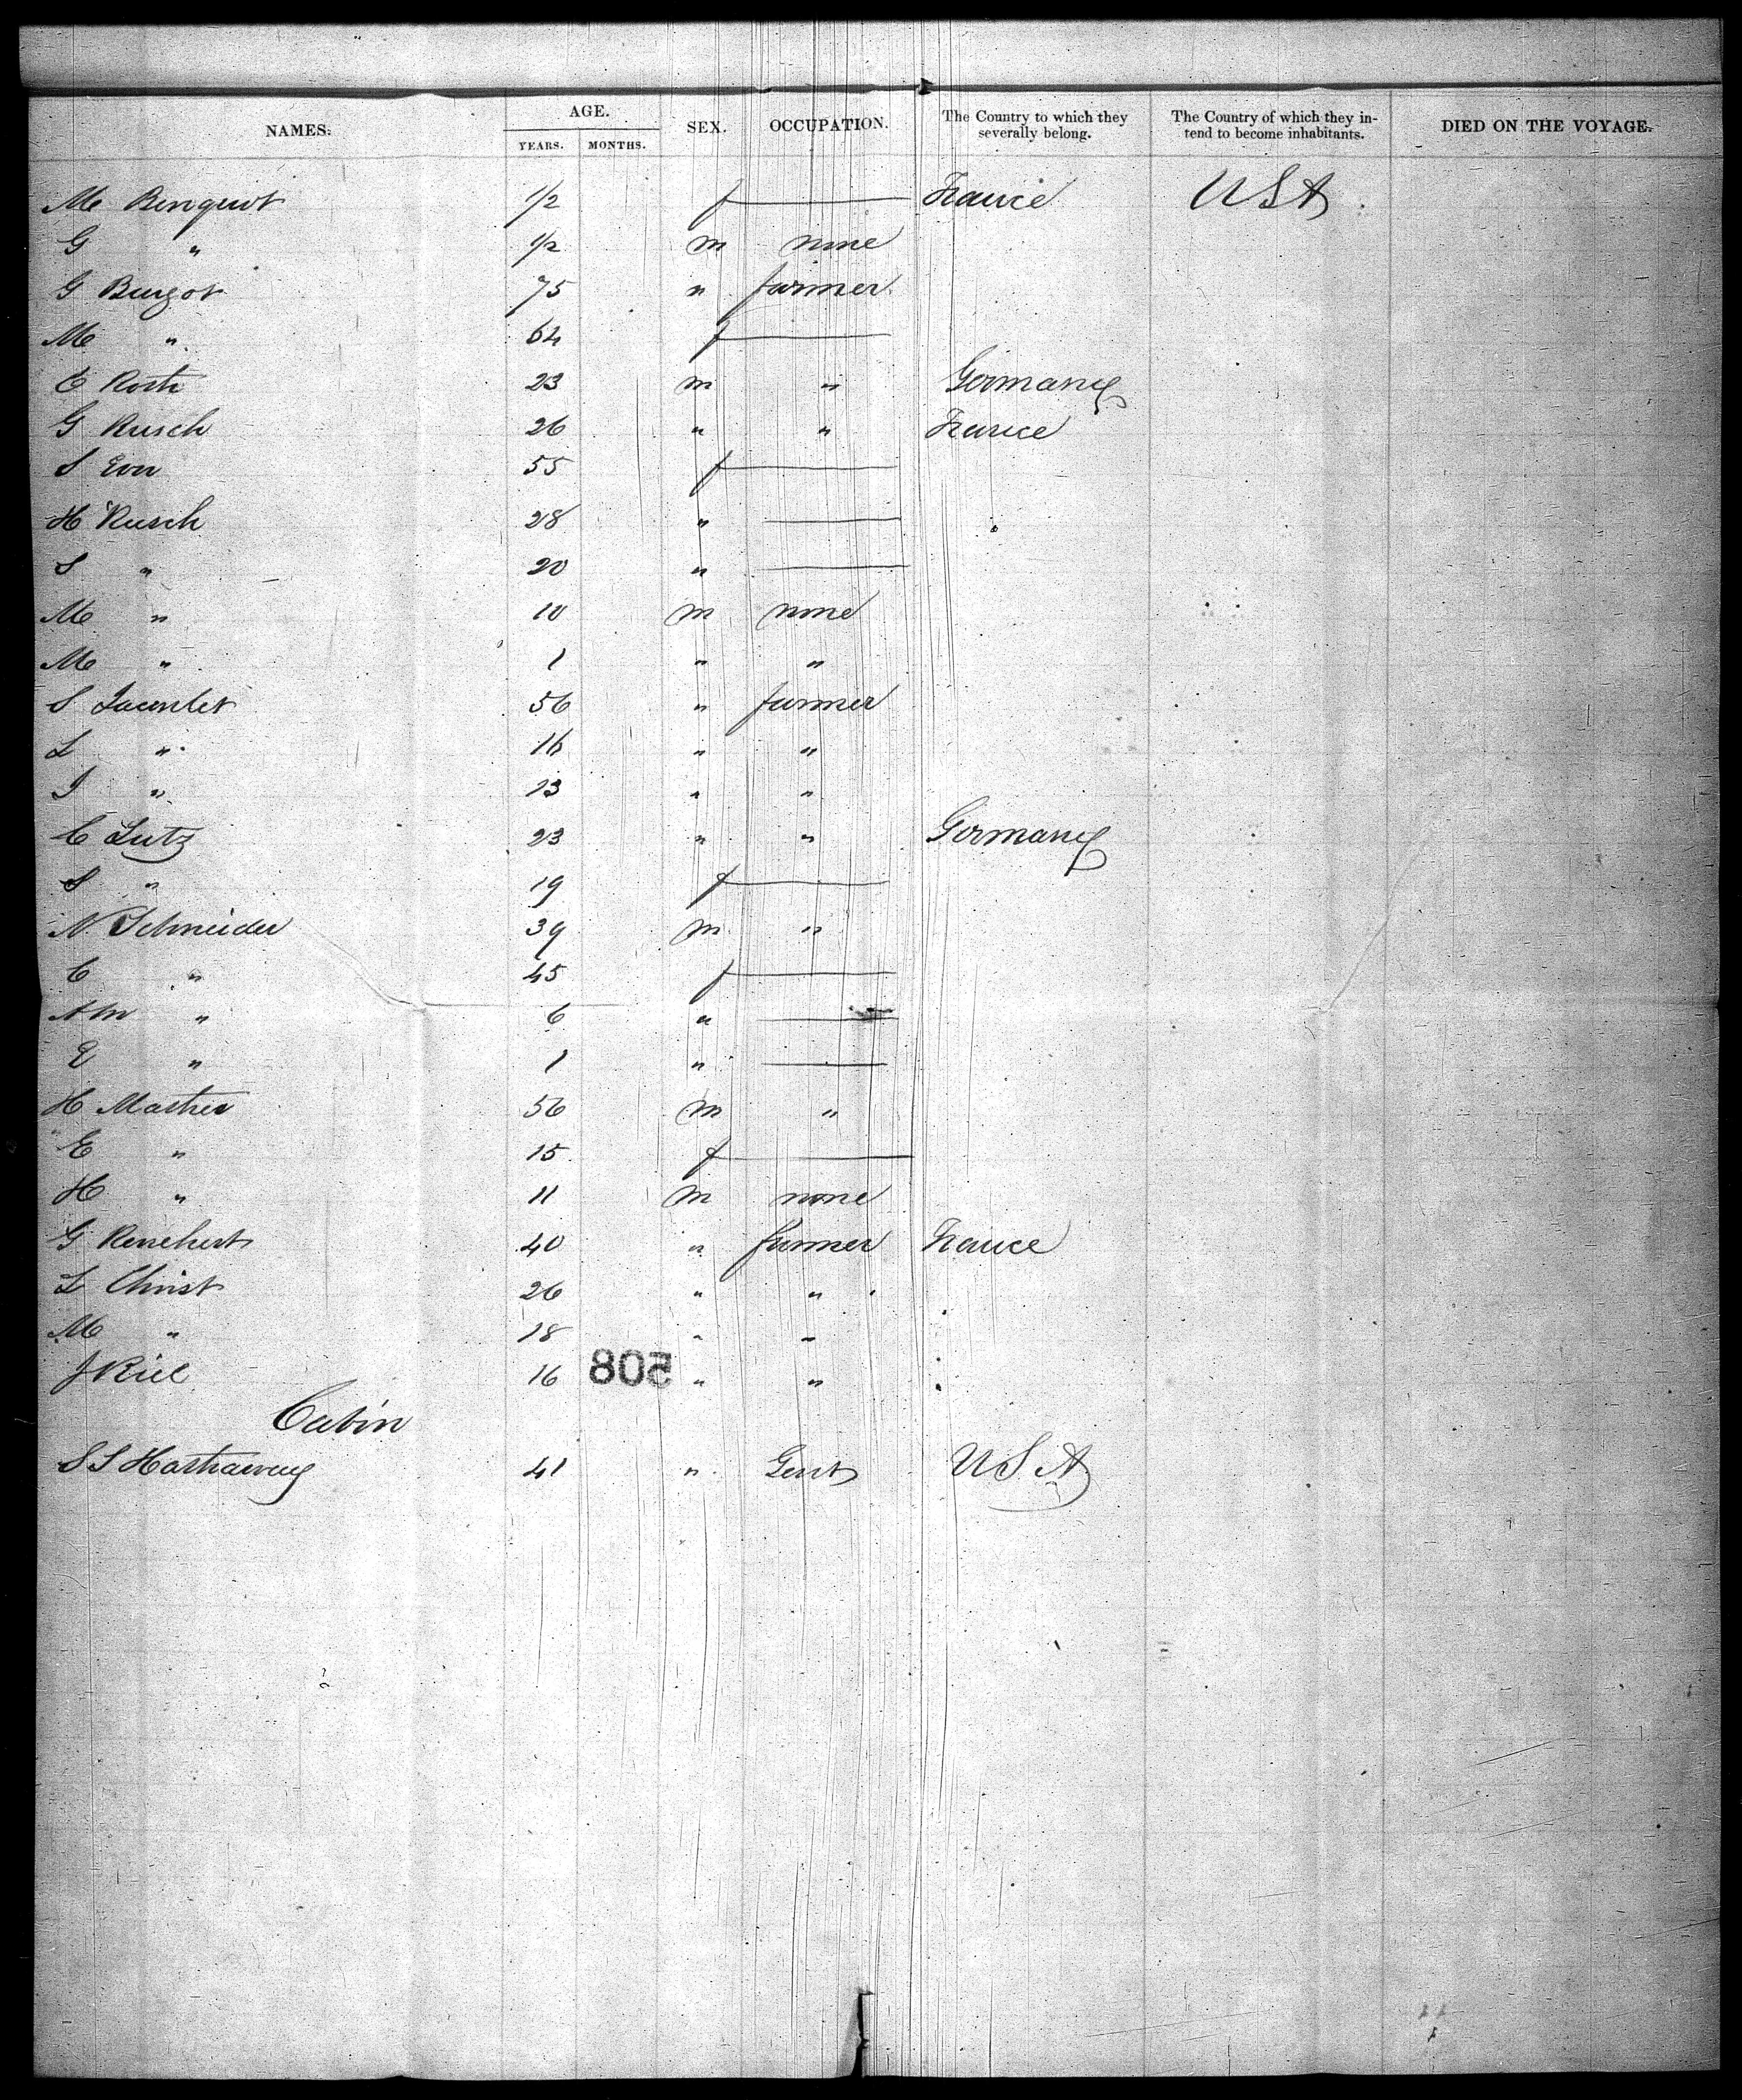 NAMES. AGE. YEARS. MONTHS. SEX. OCCUPATION. The Country to which they severally belong. The Country of which they intend to become inhabitants. DIED ON THE VOYAGE.
M 1/2 f France USA
G " 1/2 m none
G Burgot 75 " farmer
M " 64 f
C Roth 23 m " Germany
G Rusch 26 " " France
S 55 f
H Rusch 28 "
S " 20 "
M " 10 m none
M " 1 " "
S 56 " farmer
L " 16 " "
J " 13 " "
C Lutz 23 " " Germany
S " 19 f
N Schneider 39 m "
C " 45 f
AM " 6 "
E " 1 "
H Mather 56 m "
E " 15 f
H " 11 m none
G 40 " farmer France
L Christ 26 " "
M " 18 " "
J Riel 16 508 " "
Cabin
S S Hathaway 41 " Gent USA